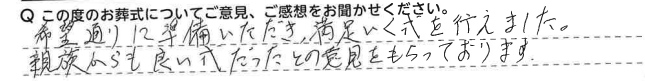 Q この度のお葬式についてご意見、ご感想をお聞かせください。
希望通りに準備いただき、満足いく式を行えました。
親族からも良い式だったとの意見をもらっております。